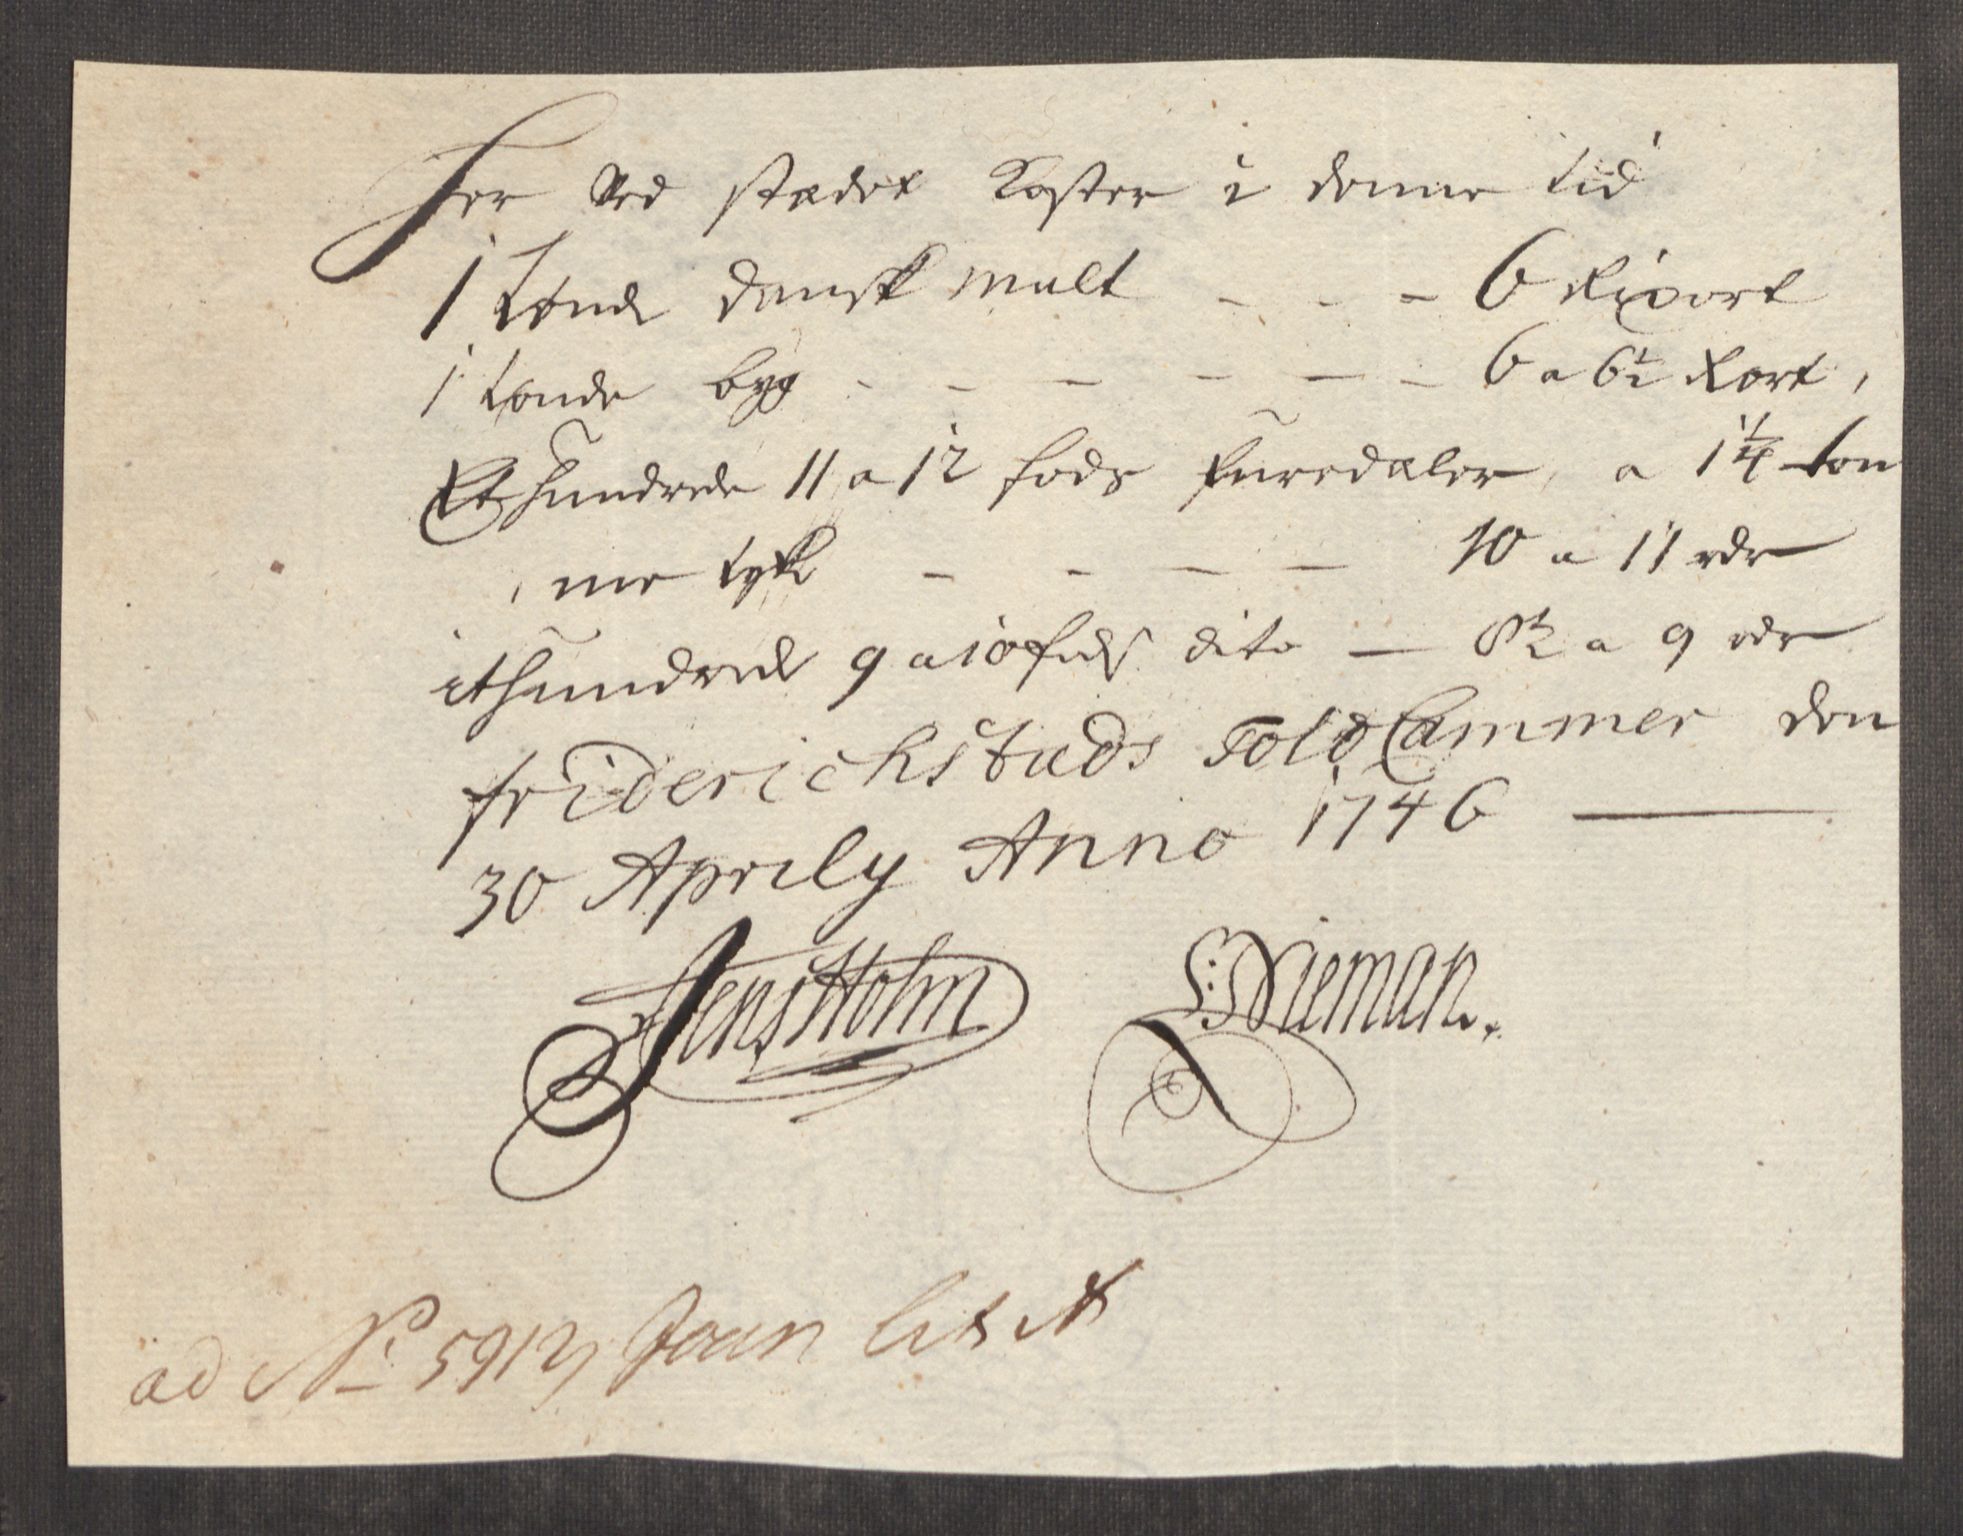 Her Ved stædet Koster i denne tid
1 tønde dansk malt - - - 6 Rixort
1 tønde byg - - - - - - 6 a 6½ Rort,
Et hundrede 11 a 12 fods furredæler, a 1¼ tom
me tyk - - - - 10 a 11 rdr
it hundrede 9 a 10 fods dito — 8½ a 9 rdr
friderichstads Told Cammer den
30 Aprily Anno 1746 —
Jens Holm Nieman.
ad No 5912 lit A